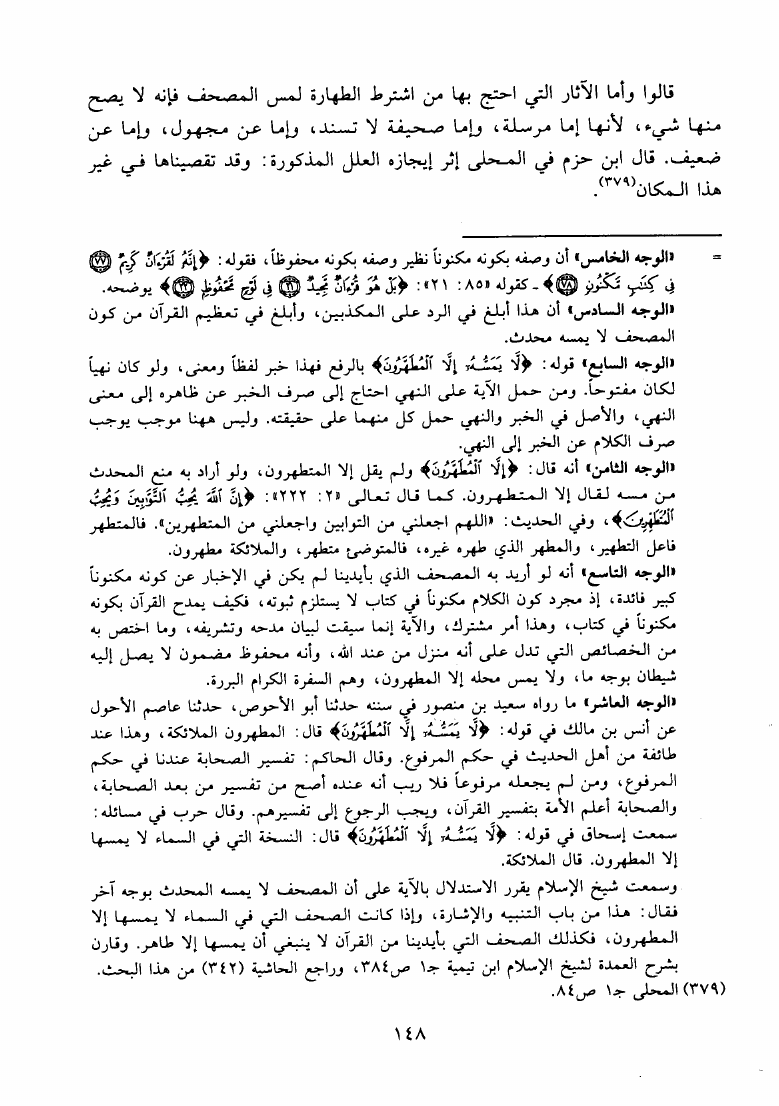 قالوا وأما الآثار التي احتج بها من اشترط الطهارة لمس المصحف فإنه لا يصح
منها شيء، لأنها إما مرسلة، وإما صحيفة لا تسند، وإما عن مجهول، وإما عن
ضعيف. قال ابن حزم في المحلى إثر إيجازه العلل المذكورة: وقد تقصيناها في غير
هذا المكان(٣٧٩).
= «الوجه الخامس» أن وصفه بكونه مكنوناً نظير وصفه بكونه محفوظاً، فقوله: ﴿إِنَّهُ لَقُرْءَانٌ كَرِيمٌ ۝٧٧
فِي كِتَٰبٍ مَّكْنُونٍ ۝٧٨﴾ ـ كقوله «٨٥: ٢١»: ﴿بَلْ هُوَ قُرْءَانٌ مَّجِيدٌ ۝٢١ فِي لَوْحٍ مَّحْفُوظٍ ۝٢٢﴾ يوضحه.
«الوجه السادس» أن هذا أبلغ في الرد على المكذبين، وأبلغ في تعظيم القرآن من كون
المصحف لا يمسه محدث.
«الوجه السابع» قوله: ﴿لَّا يَمَسُّهُۥٓ إِلَّا ٱلْمُطَهَّرُونَ﴾ بالرفع فهذا خبر لفظاً ومعنى، ولو كان نهياً
لكان مفتوحاً. ومن حمل الآية على النهي احتاج إلى صرف الخبر عن ظاهره إلى معنى
النهي، والأصل في الخبر والنهي حمل كل منهما على حقيقته. وليس ههنا موجب يوجب
صرف الكلام عن الخبر إلى النهي.
«الوجه الثامن» أنه قال: ﴿إِلَّا ٱلْمُطَهَّرُونَ﴾ ولم يقل إلا المتطهرون، ولو أراد به منع المحدث
من مسه لقال إلا المتطهرون. كما قال تعالى «٢: ٢٢٢»: ﴿إِنَّ ٱللَّهَ يُحِبُّ ٱلتَّوَّٰبِينَ وَيُحِبُّ
ٱلْمُتَطَهِّرِينَ﴾، وفي الحديث: «اللهم اجعلني من التوابين واجعلني من المتطهرين». فالمتطهر
فاعل التطهير، والمطهر الذي طهره غيره، فالمتوضئ متطهر، والملائكة مطهرون.
«الوجه التاسع» أنه لو أريد به المصحف الذي بأيدينا لم يكن في الإخبار عن كونه مكنوناً
كبير فائدة، إذ مجرد كون الكلام مكنوناً في كتاب لا يستلزم ثبوته، فكيف يمدح القرآن بكونه
مكنوناً في كتاب، وهذا أمر مشترك، والآية إنما سيقت لبيان مدحه وتشريفه، وما اختص به
من الخصائص التي تدل على أنه منزل من عند الله، وأنه محفوظ مضمون لا يصل إليه
شيطان بوجه ما، ولا يمس محله إلا المطهرون، وهم السفرة الكرام البررة.
«الوجه العاشر» ما رواه سعيد بن منصور في سننه حدثنا أبو الأحوص، حدثنا عاصم الأحول
عن أنس بن مالك في قوله: ﴿لَّا يَمَسُّهُۥٓ إِلَّا ٱلْمُطَهَّرُونَ﴾ قال: المطهرون الملائكة، وهذا عند
طائفة من أهل الحديث في حكم المرفوع. وقال الحاكم: تفسير الصحابة عندنا في حكم
المرفوع، ومن لم يجعله مرفوعاً فلا ريب أنه عنده أصح من تفسير من بعد الصحابة،
والصحابة أعلم الأمة بتفسير القرآن، ويجب الرجوع إلى تفسيرهم. وقال حرب في مسائله:
سمعت إسحاق في قوله: ﴿لَّا يَمَسُّهُۥٓ إِلَّا ٱلْمُطَهَّرُونَ﴾ قال: النسخة التي في السماء لا يمسها
إلا المطهرون. قال الملائكة.
وسمعت شيخ الإسلام يقرر الاستدلال بالآية على أن المصحف لا يمسه المحدث بوجه آخر
فقال: هذا من باب التنبيه والإشارة، وإذا كانت الصحف التي في السماء لا يمسها إلا
المطهرون، فكذلك الصحف التي بأيدينا من القرآن لا ينبغي أن يمسها إلا طاهر. وقارن
بشرح العمدة لشيخ الإسلام ابن تيمية جـ١ ص٣٨٤، وراجع الحاشية (٣٤٢) من هذا البحث.
(٣٧٩) المحلى جـ١ ص٨٤.
١٤٨